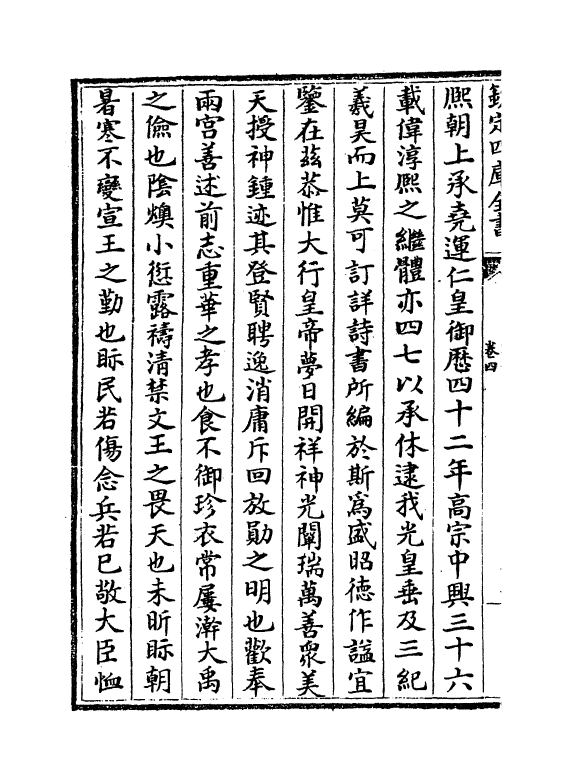 欽定四庫全書
卷四
熈朝上承堯運仁皇御厯四十二年高宗中興三十六
載偉淳熈之繼體亦四七以承休逮我光皇垂及三紀
羲昊而上莫可訂詳詩書所編於斯為盛昭德作諡宜
鑒在茲恭惟大行皇帝夢日開祥神光闡瑞萬善衆美
天授神鍾迹其登賢聘逸消庸斥回放勛之明也歡奉
兩宫善述前志重華之孝也食不御珍衣常屢澣大禹
之儉也陰燠小愆露禱清禁文王之畏天也未昕眎朝
暑寒不變宣王之勤也眎民若傷念兵若已敬大臣恤